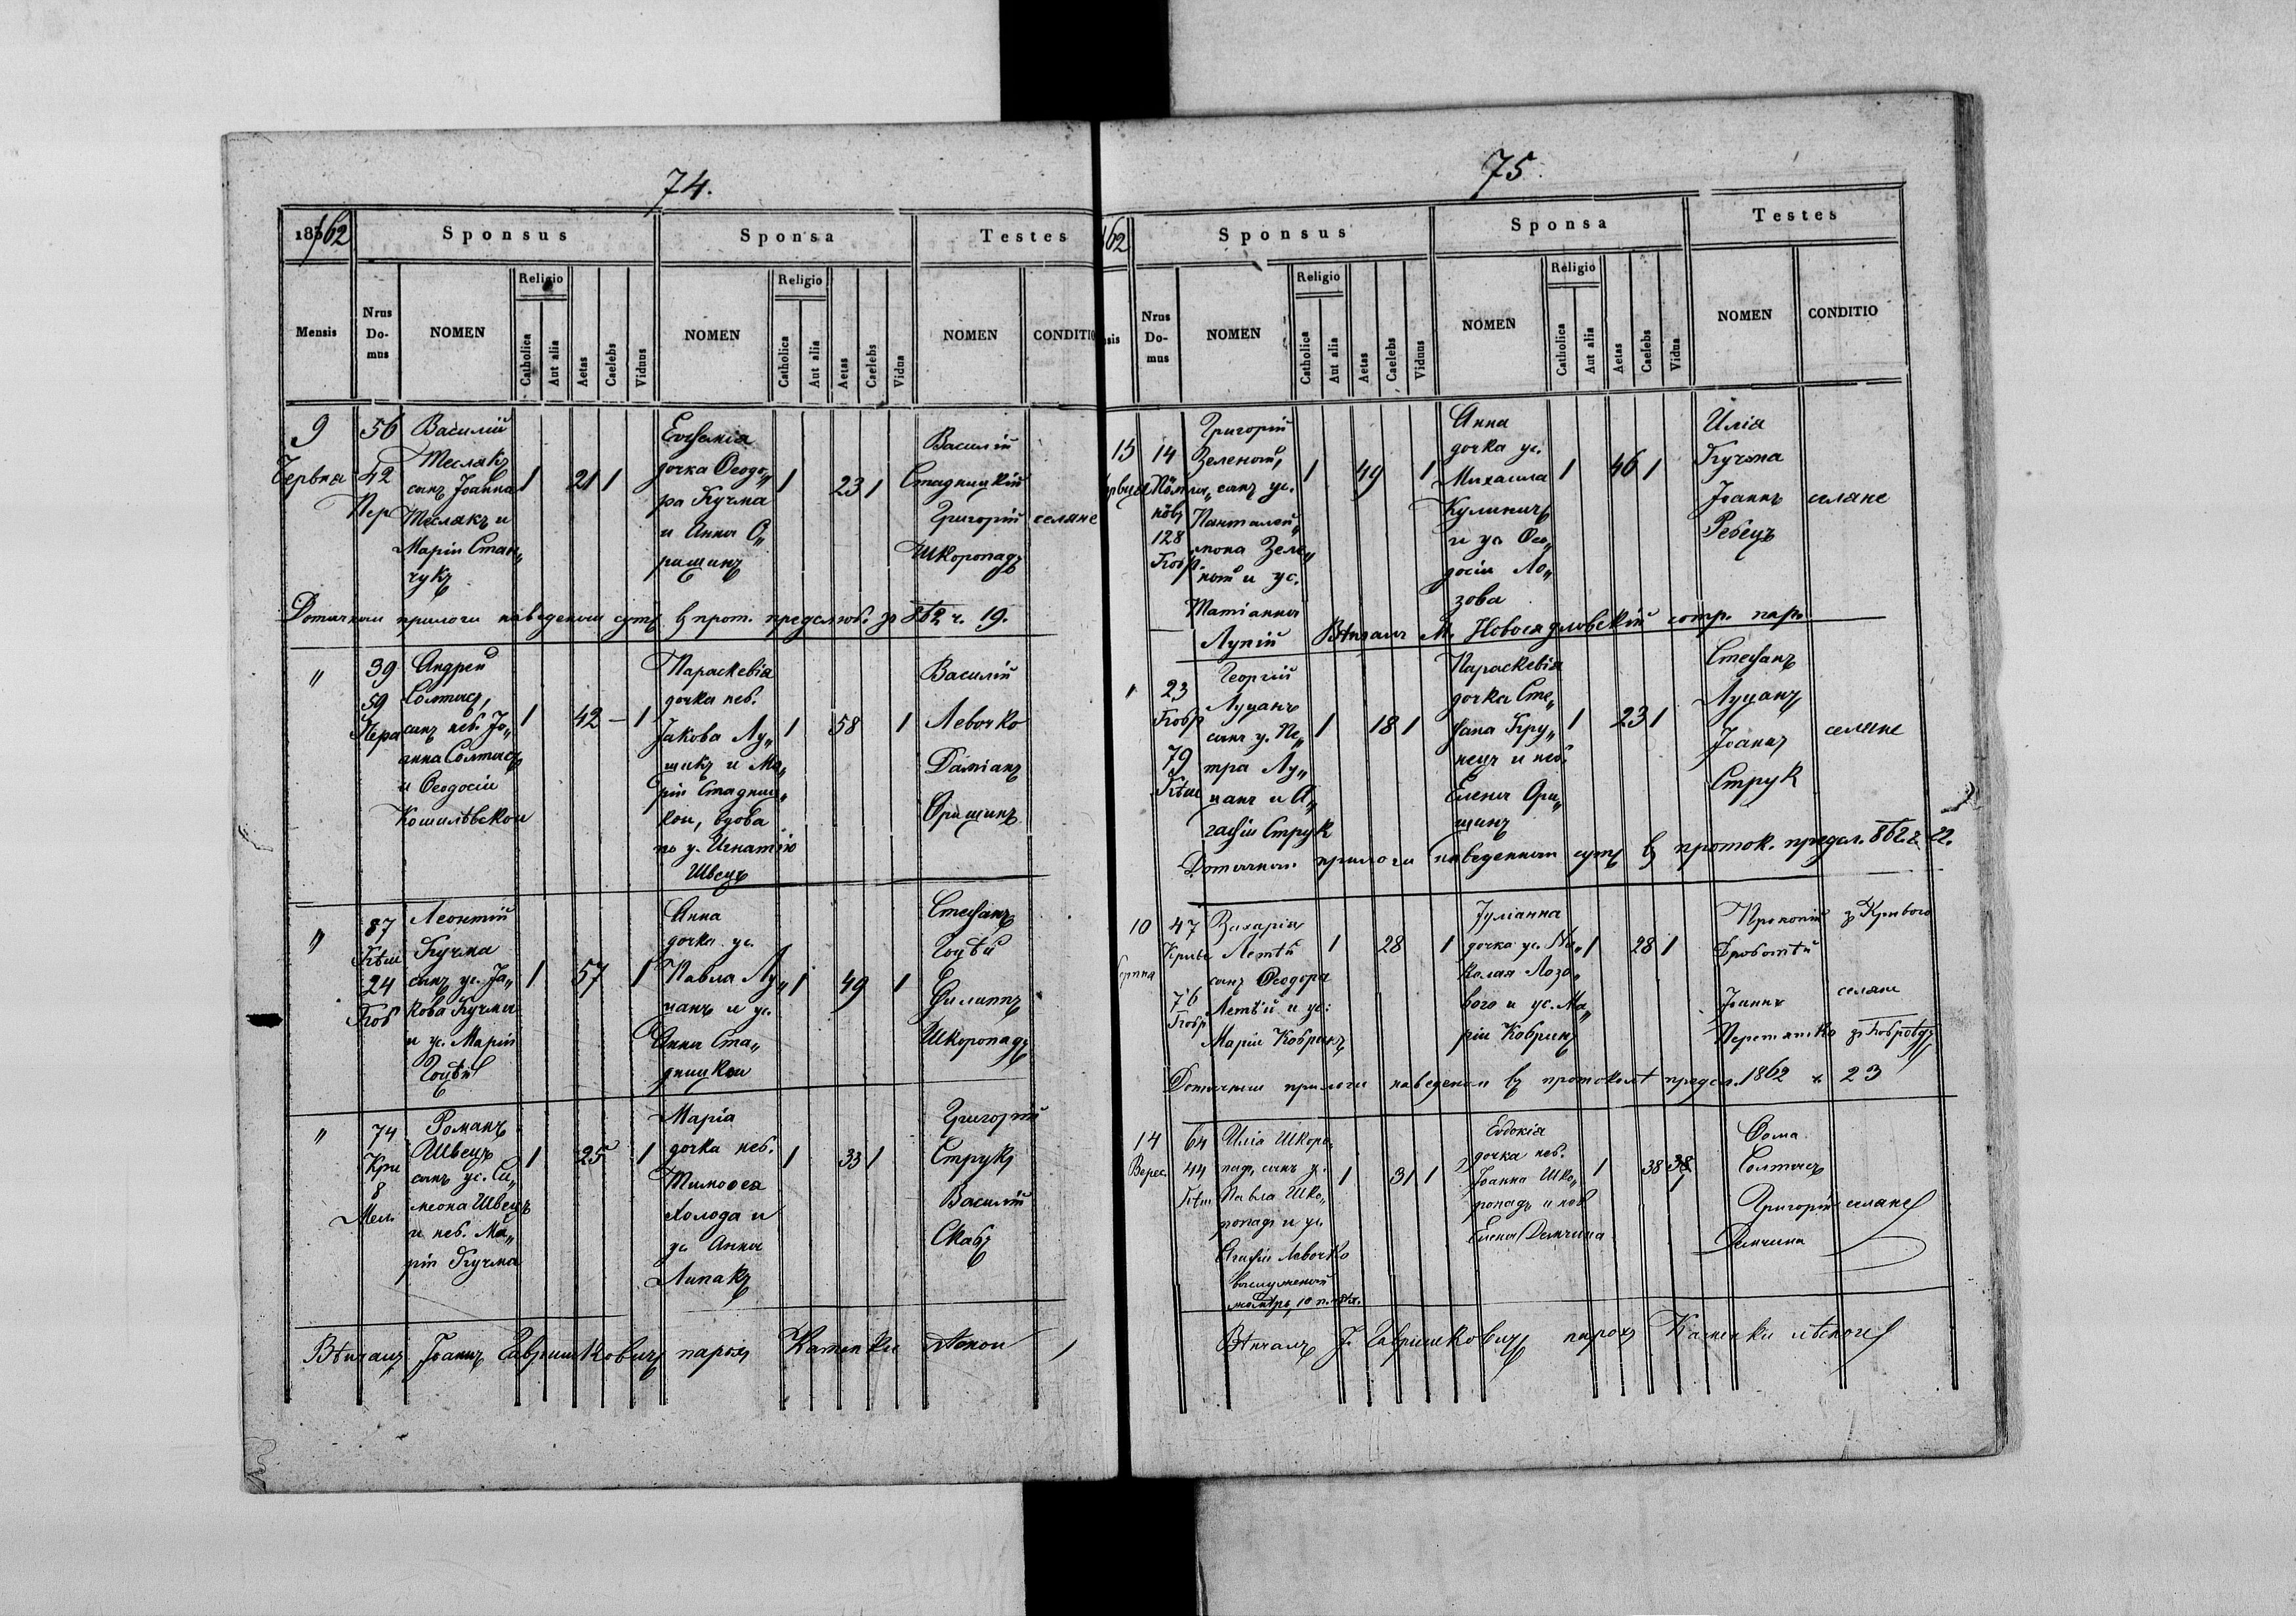 74.
183/62
Sponsus
Sponsa
Testes
Mensis
Nrus Do-mus
NOMEN
Religio
Catholica
Aut alia
Aetas
Caelebs
Viduus
NOMEN
Religio
Catholica
Aut alia
Aetas
Caelebs
Vidua
NOMEN
CONDITIO
9
Червня
56
42
Пер
Василій
Теслякъ
сынъ Іоанна
Теслякъ и
Маріи Стан„
чукъ
1 21 1
Евгенія
дочка Ѳеодо„
ра Кучма
и Анна О„
рищинъ
1 23 1
Василій
Стадницкій
Григорій
Шкоропадъ
селяне
Дотычныи прилоги наведеныи сутъ въ прот. предслюб. зъ 862 ч. 19.
„
39
59
Пера
Андрей
Солтысъ,
сынъ неб. Іо„
анна Солтысъ
и Ѳеодосіи
Кошилѣвскои
1 42 – 1
Параскевія
дочка неб.
Іакова Лу„
щикъ и Ма„
ріи Стадниц„
кои, вдова
по у. Игнатію
Швецъ
1 58 1
Василій
Левочко
Даміанъ
Орищинъ
„
87
Кѣш
24
Ков
Леонтій
Кучма
сынъ ус. Іа„
кова Кучмы
и ус. Маріи
Гоцѣй
1 57 1
Анна
дочка ус.
Павла Лу„
цанъ и ус.
Анны Ста„
дницкои
1 49 1
Стефанъ
Гоцѣй
Филиппъ
Шкоропадъ
„
74
Кри
8
Мел
Романъ
Швецъ
сынъ ус. Си„
меона Швецъ
и неб. Ма„
ріи Кучма
1 25 1
Марія
дочка неб.
Тимоѳея
Холода и
ус Анны
Липакъ
1 33 1
Григорій
Струкъ
Василій
Скабъ
Вѣнчалъ Іоаннъ Гавришковичъ парохъ Каменки лѣснои
75.
62
Sponsus
Sponsa
Testes
sis
Nrus Do-mus
NOMEN
Religio
Catholica
Aut alia
Aetas
Caelebs
Viduus
NOMEN
Religio
Catholica
Aut alia
Aetas
Caelebs
Vidua
NOMEN
CONDITIO
15
14
128
Григорій
Зеленый,
сынъ ус.
Панталей„
мона Зеле„
ный и ус.
Татіанны
Лупій
1 49 1
Анна
дочка ус.
Михаила
Кулиничъ
и ус Ѳео„
досіи Ло„
зова
1 46 1
Илія
Кучма
Іоаннъ
Ребецъ
селяне
Вѣнчалъ М. Новосядловскій сотр. пар.
23
Бобр
79
Кѣш
Георгій
Луцанъ
сынъ у. Пе„
тра Лу„
цанъ и А„
гафіи Струк
1 18 1
Параскевія
дочка Сте„
фана Кру„
пецъ и неб.
Елены Ори„
щинъ
1 23 1
Стефанъ
Луцанъ
Іоаннъ
Струк
селяне
Дотычныи прилоги наведенныи сутъ въ проток. предсл. 862 ч 22.
10
Серпня
47
Криве
76
Бобр
Захарія
Летѣй
сынъ Ѳеодора
Летѣй и ус:
Маріи Кобрынъ
1 28 1
Іуліанна
дочка ус. Ни„
колая Лозо„
вого и ус. Ма„
ріи Кобринъ
1 28 1
Прокопій
Дроботѣй
Іоаннъ
Перетятко
зъ Кривого
селяне
зъ Бобровдъ
Дотычныи прилоги наведеныи въ протоколѣ предсл. 1862 ч 23
14
Верес
64
44
Кѣш
Илія Шкоро„
падъ, сынъ у.
Павла Шко„
ропадъ и ус.
Агафіи Левочко
выслуженый
1 31 1
Евдокія
дочка неб.
Іоанна Шко„
ропадъ и неб
Елены Демчина
1 38 38
Ѳома
Солтысъ
Григорій
Демчина
селяне
Вѣнчалъ І. Гавришковичъ парохъ Каменки лѣснои